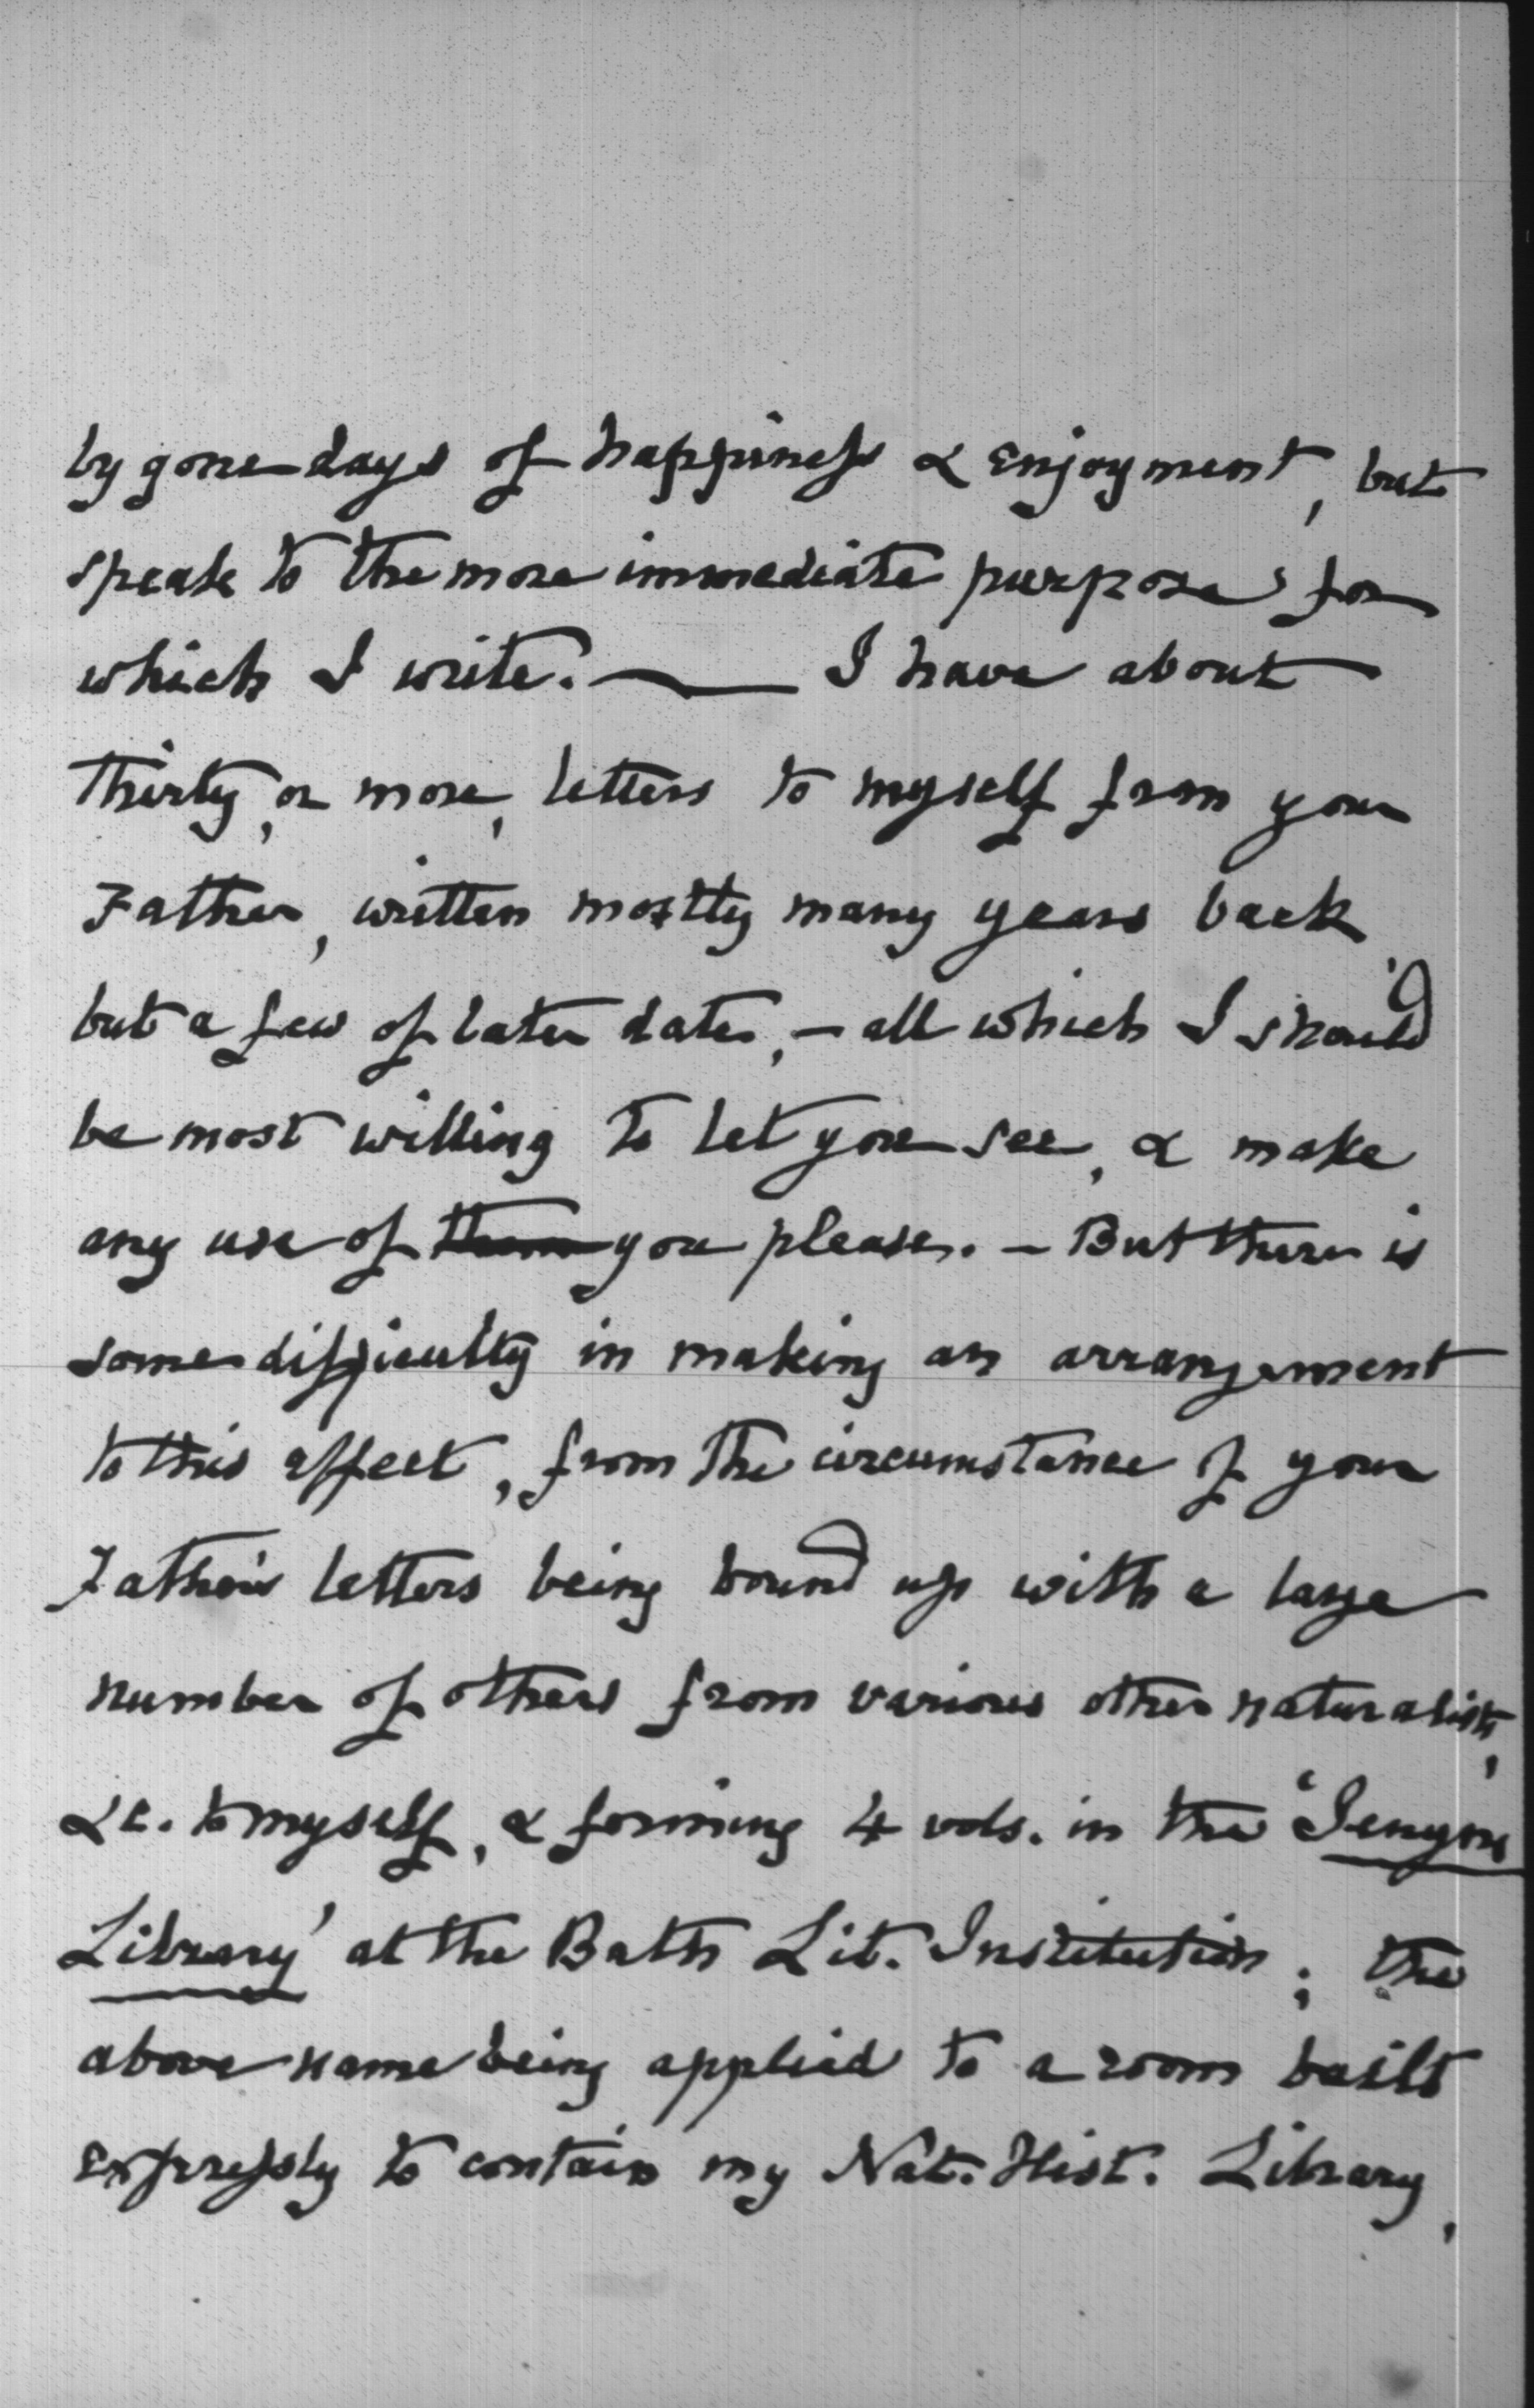 by gone days of happiness & enjoyment, but
speak to the more immediate purpose, for
which I write. — I have about
thirty, or more, letters to myself from your
Father, written mostly many years back,
but a few of later date, — all which I should
be most willing to let you see, & make
any use of them you please. — But there is
some difficulty in making an arrangement
to this effect, from the circumstance of your
Father's letters being bound up with a large
number of others from various other naturalists,
&c. to myself, & forming 4 vols. in the 'Jenyns
Library' at the Bath Lit. Institution; the
above name being applied to a room built
expressly to contain my Nat. Hist. Library,